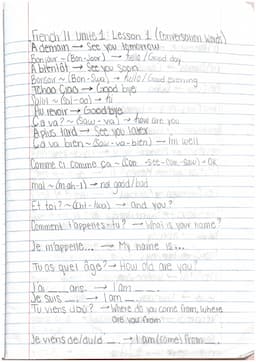 French 11 Unité 1: Lesson 1 (Conversation Words)
A demain → See you tomorrow
Bonjour ~ (Bon-Joor) → hello/Good day
A bientôt → See you soon
Bonsoir ~ (Bon-Swa) → hello/Good evening
Tchao Ciao → Good bye
Salut ~ (Sal-oo) → hi
Au revoir → Goodbye
Ca va? ~ (Saw-va) → how are you
A plus tard → See you later
Ca va bien ~ (Saw-va-bien) → I'm well
Comme ci comme ça ~ (Con-see-con-saw) → Ok
mal ~ (mah-l) → not good/bad
Et toi? ~ → and you?
Comment t'appelles-tu? → What is your name?
Je m'appelle... → My name is...
Tu as quel âge? → How old are you?
J'ai ___ ans. → I am ___.
Je suis ___. → I am ___.
Tu viens d'où? → Where do you come from, where
are you from
Je viens de/du/d ___. → I am (come) from ___.